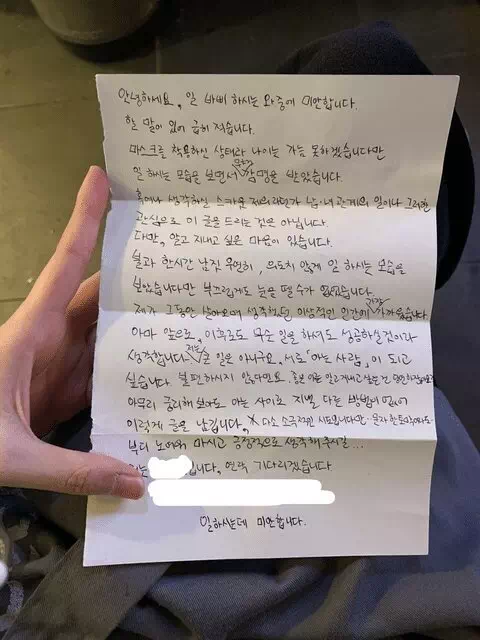 안녕하세요, 일 바삐 하시는 와중에 미안합니다.
할 말이 있어 급히 적습니다.
마스크를 착용하신 상태라 나이는 가늠 못하겠습니다만
일 하시는 모습을 보면서 감명을 받았습니다.
혹여나 생각하실 스카웃 제의라던가 남·녀 관계의 일이나 그러한
관심으로 이 글을 드리는 것은 아닙니다.
다만, 알고 지내고 싶은 마음이 있습니다.
불과 한시간 남짓 우연히, 의도치 않게 일 하시는 모습을
보았습니다만 부끄럽게도 눈을 뗄 수가 없었습니다.
제가 그동안 살아오며 생각했던 이상적인 인간에 가장 가까웠습니다
아마 앞으로, 이후로도 무슨 일을 하셔도 성공하실 것이라
생각합니다. 저는 큰 일은 아니구요, 서로 "아는 사람"이 되고
싶습니다 불편하시지 않다면요.
아무리 궁리해 보아도 아는 사이로 지낼 다른 방법이 없어
이렇게 글을 남깁니다. * 다소 소극적인 시도입니다만 문자 한통이라도
부디 노여워 마시고 긍정적으로 생각해 주시길...
저는 입니다, 연락 기다리겠습니다
일하시는데 미안합니다.